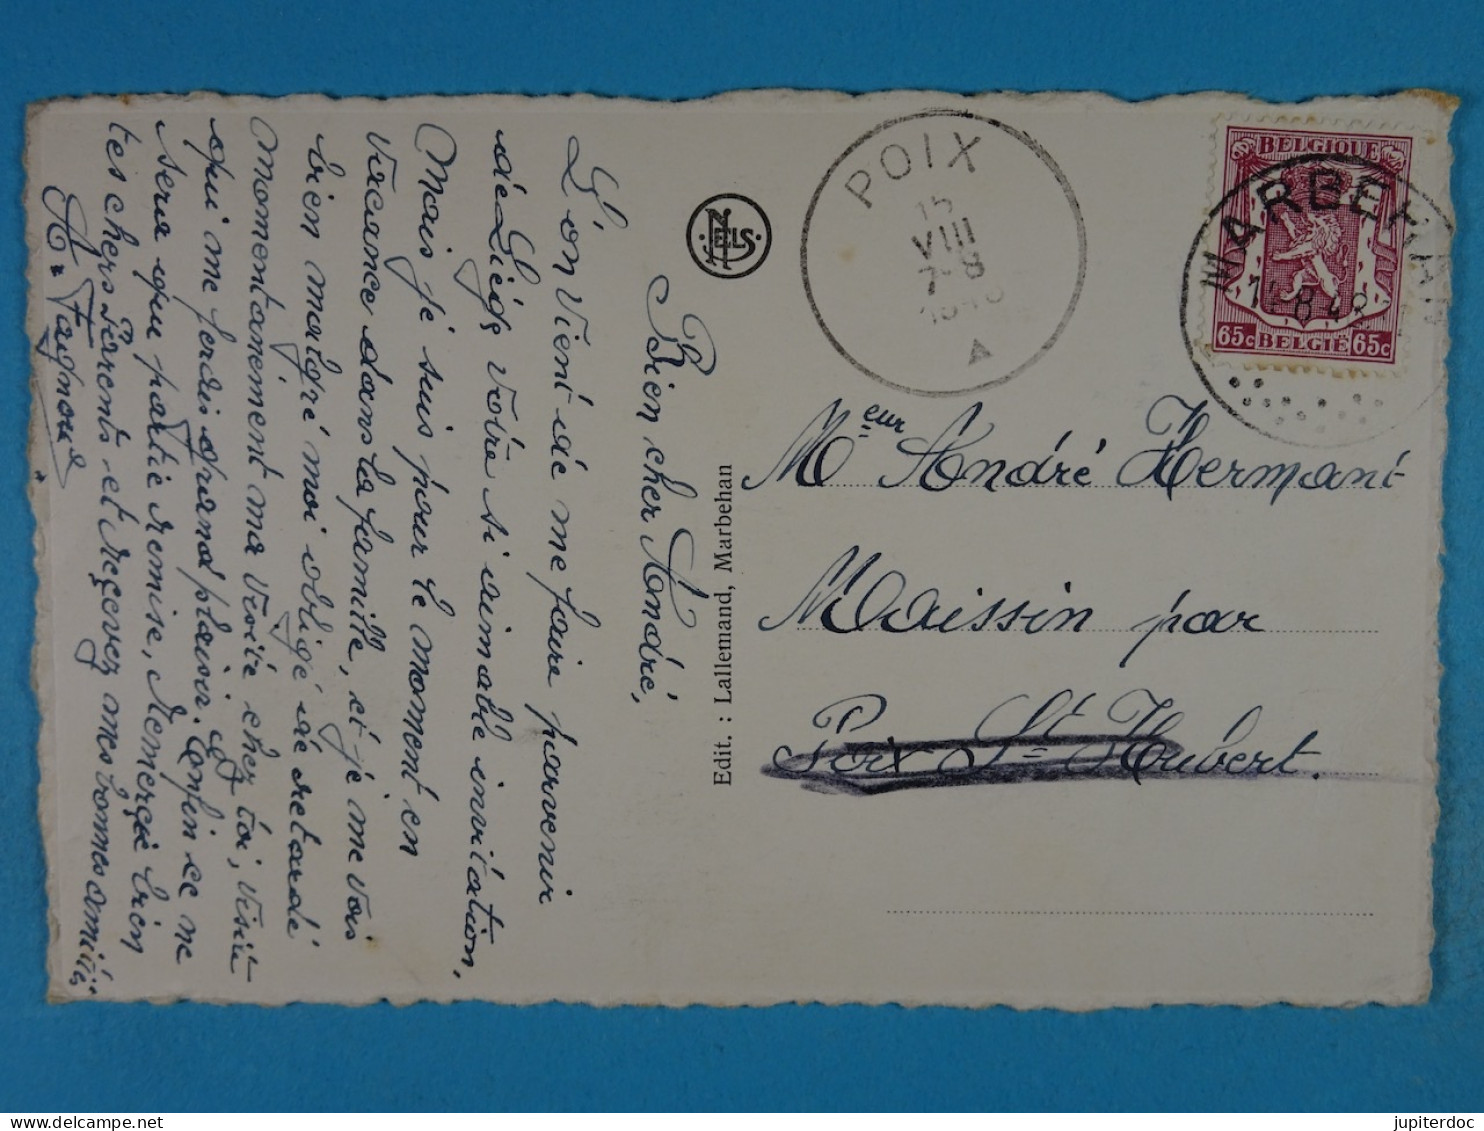 Bien cher André,
L'on vient de me faire parvenir
de Liége votre si aimable invitation,
Mais je suis pour le moment en
vacance dans la famille, et je me vois
bien malgré moi obligé de retardé
momentanement ma visite chez toi, visite
qui me ferais grand plaisir. Enfin ce ne
sera que partie remise, Remerçie bien
tes chers Parents et Reçevez mes bonnes amitiés
NELS
Edit. : Lallemand, Marbehan
POIX
15
VIII
7-8
1948
BELGIQUE
65c BELGIË 65c
MARBEHAN
8.48
Meur André Hermant
Maissin par
Poix St Hubert.
jupiterdoc